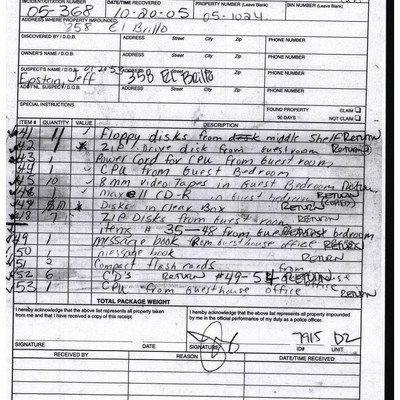 INCIDENT/CITATION NUMBER DATE/TIME PROPERTY NUMBER (Leave Blank) BIN NUMBER (Leave Blank)
05-368 10-20-05 05-1024
ADDRESS WHERE PROPERTY IMPOUNDED
358 El Brillo
DISCOVERED BY / D.O.B. ADDRESS Street City Zip PHONE NUMBER
OWNER'S NAME / D.O.B. ADDRESS Street City Zip PHONE NUMBER
SUSPECT'S NAME / D.O.B. ADDRESS Street City Zip PHONE NUMBER
Epstein, Jeff 358 El Brillo
ADDTNL. SUSPECT / D.O.B. ADDRESS Street City Zip PHONE NUMBER
SPECIAL INSTRUCTIONS FOUND PROPERTY CLAIM
90 DAYS NOT CLAIM
ITEM # QUANTITY VALUE DESCRIPTION
41 11 Floppy disks from desk middle Shelf Return
42 1 ZIP Drive disk from guest room Return
43 1 Power Cord for CPU from Guest room
44 1 CPU from Guest Bedroom
45 10 8 mm video Tapes in Guest Bedroom Return
1 maxell CD-R in guest bedroom Return
Disks in Clear Box Return
48 7 ZIP Disks from Guest room Return
items # 35-48 from Guest bedroom
49 1 message book from guesthouse office Return
50 1 message book Return
2 Compact flash cards from
52 6 CD's Return #49-54
53 1 CPU from Guesthouse office Return
TOTAL PACKAGE WEIGHT
I hereby acknowledge that the above list represents all property taken from me and that I have received a copy of this receipt.
I hereby acknowledge that the above list represents all property impounded by me in the official performance of my duty as a police officer.
7915 D2
SIGNATURE DATE SIGNATURE ID# UNIT
RECEIVED BY REASON DATE/TIME RECEIVED